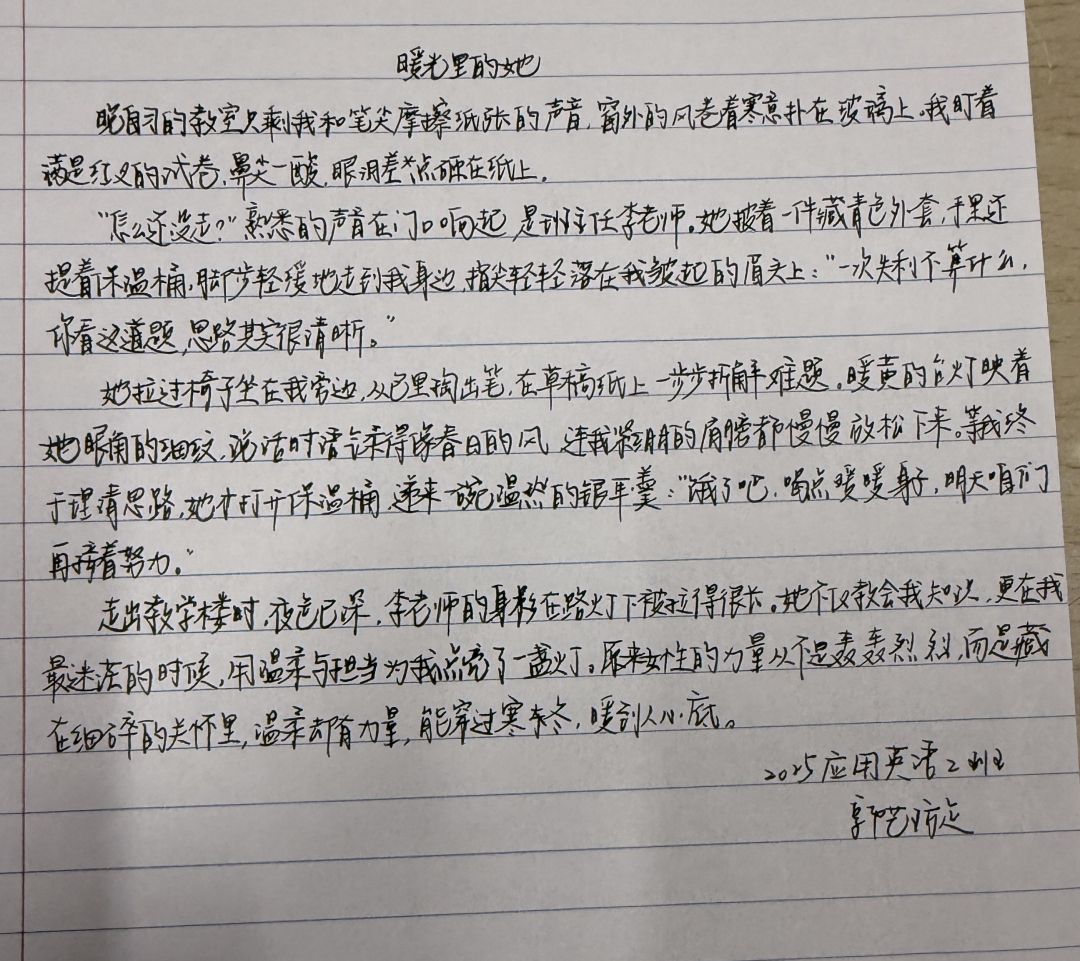 暖光里的她
晚自习的教室只剩我和笔尖摩擦纸张的声音,窗外的风卷着寒意扑在玻璃上。我盯着
满是红叉的试卷,鼻尖一酸,眼泪差点砸在纸上。
“怎么还没走?”熟悉的声音在门口响起,是班主任李老师。她披着一件藏青色外套,手里还
提着保温桶,脚步轻缓地走到我身边,指尖轻轻落在我皱起的眉头上:“一次失利不算什么,
你看这道题,思路其实很清晰。”
她拉过椅子坐在我旁边,从包里掏出笔,在草稿纸上一步步拆解难题。暖黄的台灯映着
她眼角的细纹,说话时语气柔得像春日的风,连我紧绷的肩膀都慢慢放松下来。等我终
于理清思路,她才打开保温桶,递来一碗温热的银耳羹:“饿了吧,喝点暖暖身子,明天咱们
再接着努力。”
走出教学楼时,夜色已深,李老师的身影在路灯下被拉得很长。她不仅教会我知识,更在我
最迷茫的时候,用温柔与担当为我点亮了一盏灯。原来女性的力量从不是轰轰烈烈,而是藏
在细碎的关怀里,温柔却有力量,能穿过寒冬,暖到人心底。
2025应用英语2班
郭艺